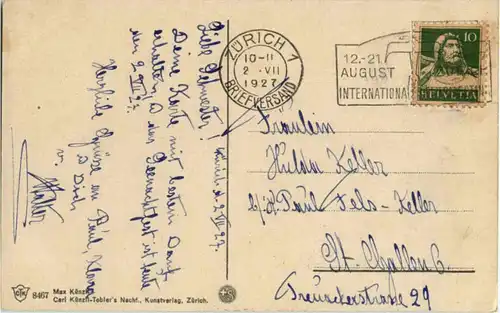 Zürich d. 2. VII. 27.
Liebe Schwester!
Deine Karte mit bestem Dank
erhalten. D
ist heute
den 2. VII. 27.
Herzliche Grüsse an Paul, Klara
u. Dich
v.
Walter
ZÜRICH 1
10-11
2. VII
1927
BRIEFVERSAND
12.-21.
AUGUST
INTERNATIONA
10
HELVETIA
Fräulein
Hulda Keller
b/H. Paul Fels-Keller
St. Gallen 6.
29
8467 Max Künzli
Carl Künzli-Tobler's Nachf., Kunstverlag, Zürich.